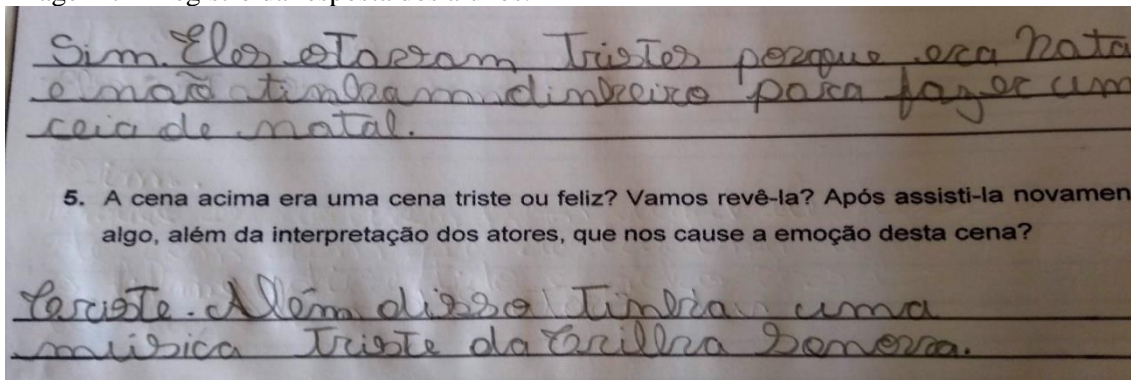 Sim. Eles estavam Tristes porque era Nata
e não tinham dinheiro para fazer um
ceia de natal.
5. A cena acima era uma cena triste ou feliz? Vamos revê-la? Após assisti-la novamen
algo, além da interpretação dos atores, que nos cause a emoção desta cena?
Triste. Além disso Tinha uma
música Triste da Trilha Sonora.